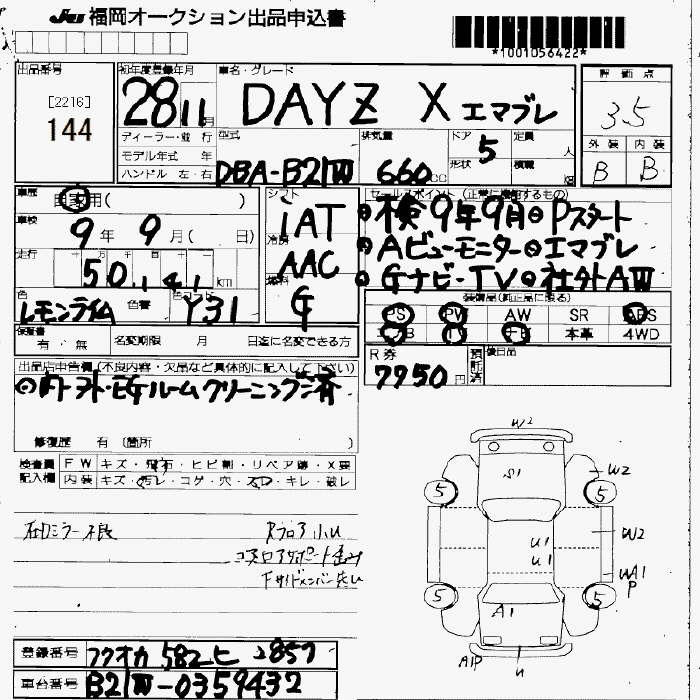 JU 福岡オークション出品申込書
*1001056422*
出品番号
[2216]
144
初年度登録年月
28 11月
車名・グレード
DAYZ X エマブレ
評価点
3.5
外装 内装
B B
ディーラー・並行
モデル年式 年
ハンドル 左・右
型式
DBA-B21W
排気量
660cc
ドア 5
形状
定員 人
積載 kg
車歴
自家用( )
車検
9年 9月( 日)
走行
50,141 km
色
レモンライム
色替
色コード
Y31
シフト
IAT
冷房
AAC
燃料
G
セールスポイント (正常に機能するもの)
◎検9年9月◎Pスタート
◎Aビューモニター◎エマブレ
◎Gナビ-TV◎社外AW
装備品(純正品に限る)
PS PW AW SR ABS
本革 4WD
R券
7950円
預託済
後日品
保証書
有・無
名変期限 月 日迄に名変できる方
出品店申告欄 (不良内容・欠品など具体的に記入して下さい)
◎内・外・EGルームクリーニング済
修復歴 有 (箇所 )
検査員
記入欄
FW キズ・飛石・ヒビ割・リペア跡・X要
内装 キズ・汚レ・コゲ・穴・スレ・キレ・破レ
右ロミラー不良
Rフロア小U
W2
S1
W2
5
5
U1
U1
W2
WA1
P
5
5
A1
A1P
U
登録番号 フクオカ 582 ヒ 2857
車台番号 B21W-0359432